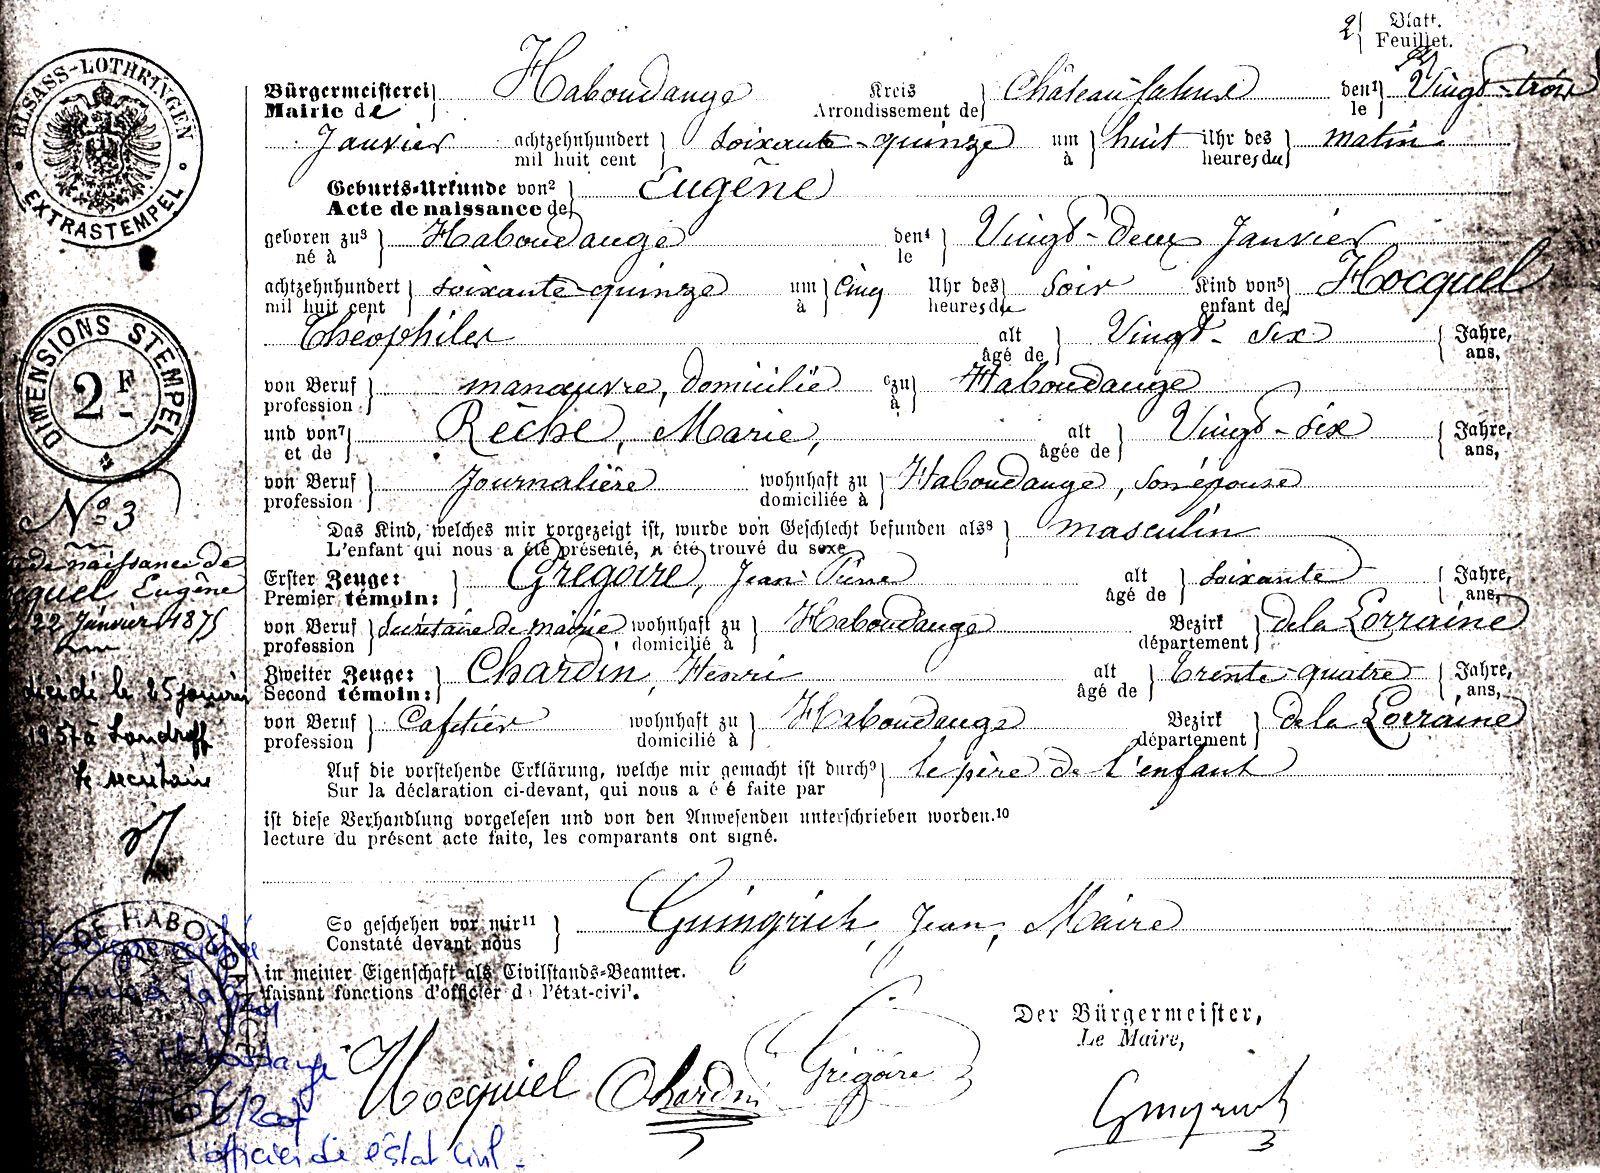 2 Blatt.
Feuillet.
ELSASS-LOTHRINGEN
EXTRASTEMPEL
Bürgermeisterei Haboudange Kreis Château-Salins den¹ Vingt-trois
Mairie de Arrondissement de le
Janvier achtzehnhundert soixante-quinze um huit Uhr des matin
mil huit cent à heures du
Geburts-Urkunde von² Eugêne
Acte de naissance de
geboren zu³ Haboudange den⁴ Vingt-deux Janvier
né à le
achtzehnhundert soixante-quinze um Cinq Uhr des Soir Kind von⁵ Hocquel
mil huit cent à heures du enfant de
Théophile alt Vingt-six Jahre,
âgé de ans,
DIMENSIONS STEMPEL
2 F
von Beruf manœuvre, domicilié zu Haboudange
profession à
und von⁷ Rêche, Marie, alt Vingt-six Jahre,
et de âgée de ans,
von Beruf Journalière wohnhaft zu Haboudange, son épouse
profession domiciliée à
Das Kind, welches mir vorgezeigt ist, wurde von Geschlecht befunden als⁸ masculin
L'enfant qui nous a été présenté, a été trouvé du sexe
Erster Zeuge: Grégoire, Jean Pierre alt soixante Jahre,
Premier témoin: âgé de ans,
von Beruf Secrétaire de mairie wohnhaft zu Haboudange Bezirk de la Lorraine
profession domicilié à département
Zweiter Zeuge: Chardin, Henri alt trente-quatre Jahre,
Second témoin: âgé de ans,
von Beruf Cafetier wohnhaft zu Haboudange Bezirk de la Lorraine
profession domicilié à département
Auf die vorstehende Erklärung, welche mir gemacht ist durch⁹ le père de l'enfant
Sur la déclaration ci-devant, qui nous a é é faite par
ist diese Verhandlung vorgelesen und von den Anwesenden unterschrieben worden.¹⁰
lecture du présent acte faite, les comparants ont signé.
So geschehen vor mir¹¹ Guingrich, Jean, Maire
Constaté devant nous
in meiner Eigenschaft als Civilstands-Beamter.
faisant fonctions d'officier d l'état-civil.
Der Bürgermeister,
Le Maire,
Hocquel Chardin Grégoire
Guingrich
N° 3
de naissance de
Hocquel Eugêne
22 Janvier 1875
décédé le 25 janvier
1957 à Landroff
le secrétaire
DE HABOUDANGE
à Haboudange
l'officier de l'état civil